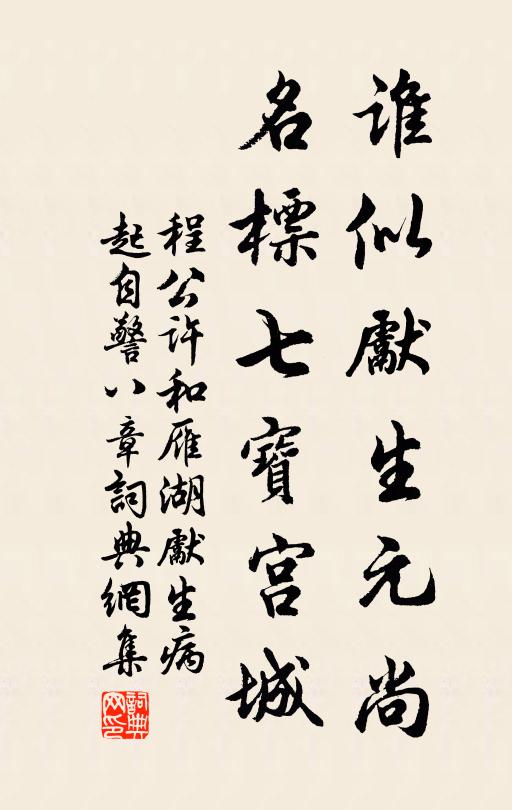 誰似獻生元尚
名標七寶宮城
程公許和雁湖獻生病
起自警八章詞典網集
詞典
网印